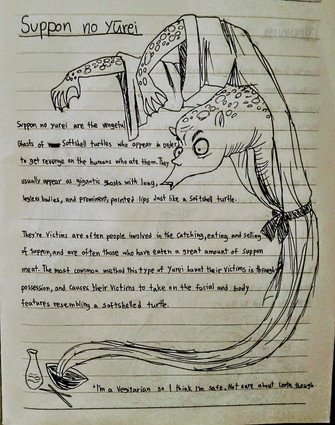 Suppon no Yūrei
Suppon no yurei are the vengeful
Ghosts of Softshell turtles who appear in order
to get revenge on the humans who ate them. They
usually appear as gigantic ghosts with long,
legless bodies, and prominent, pointed lips Just like a Softshell turtle.
They're Victims are often people involved in the Catching, eating, and selling
of suppon, and are often those who have eaten a great amount of Suppon
meat. The most common method this type of Yurei haunt their Victims is through
possession, and causes their Victims to take on the facial and body
features resembling a softshelled turtle.
*I'm a Vegitarian so I think I'm safe. Not sure about though.